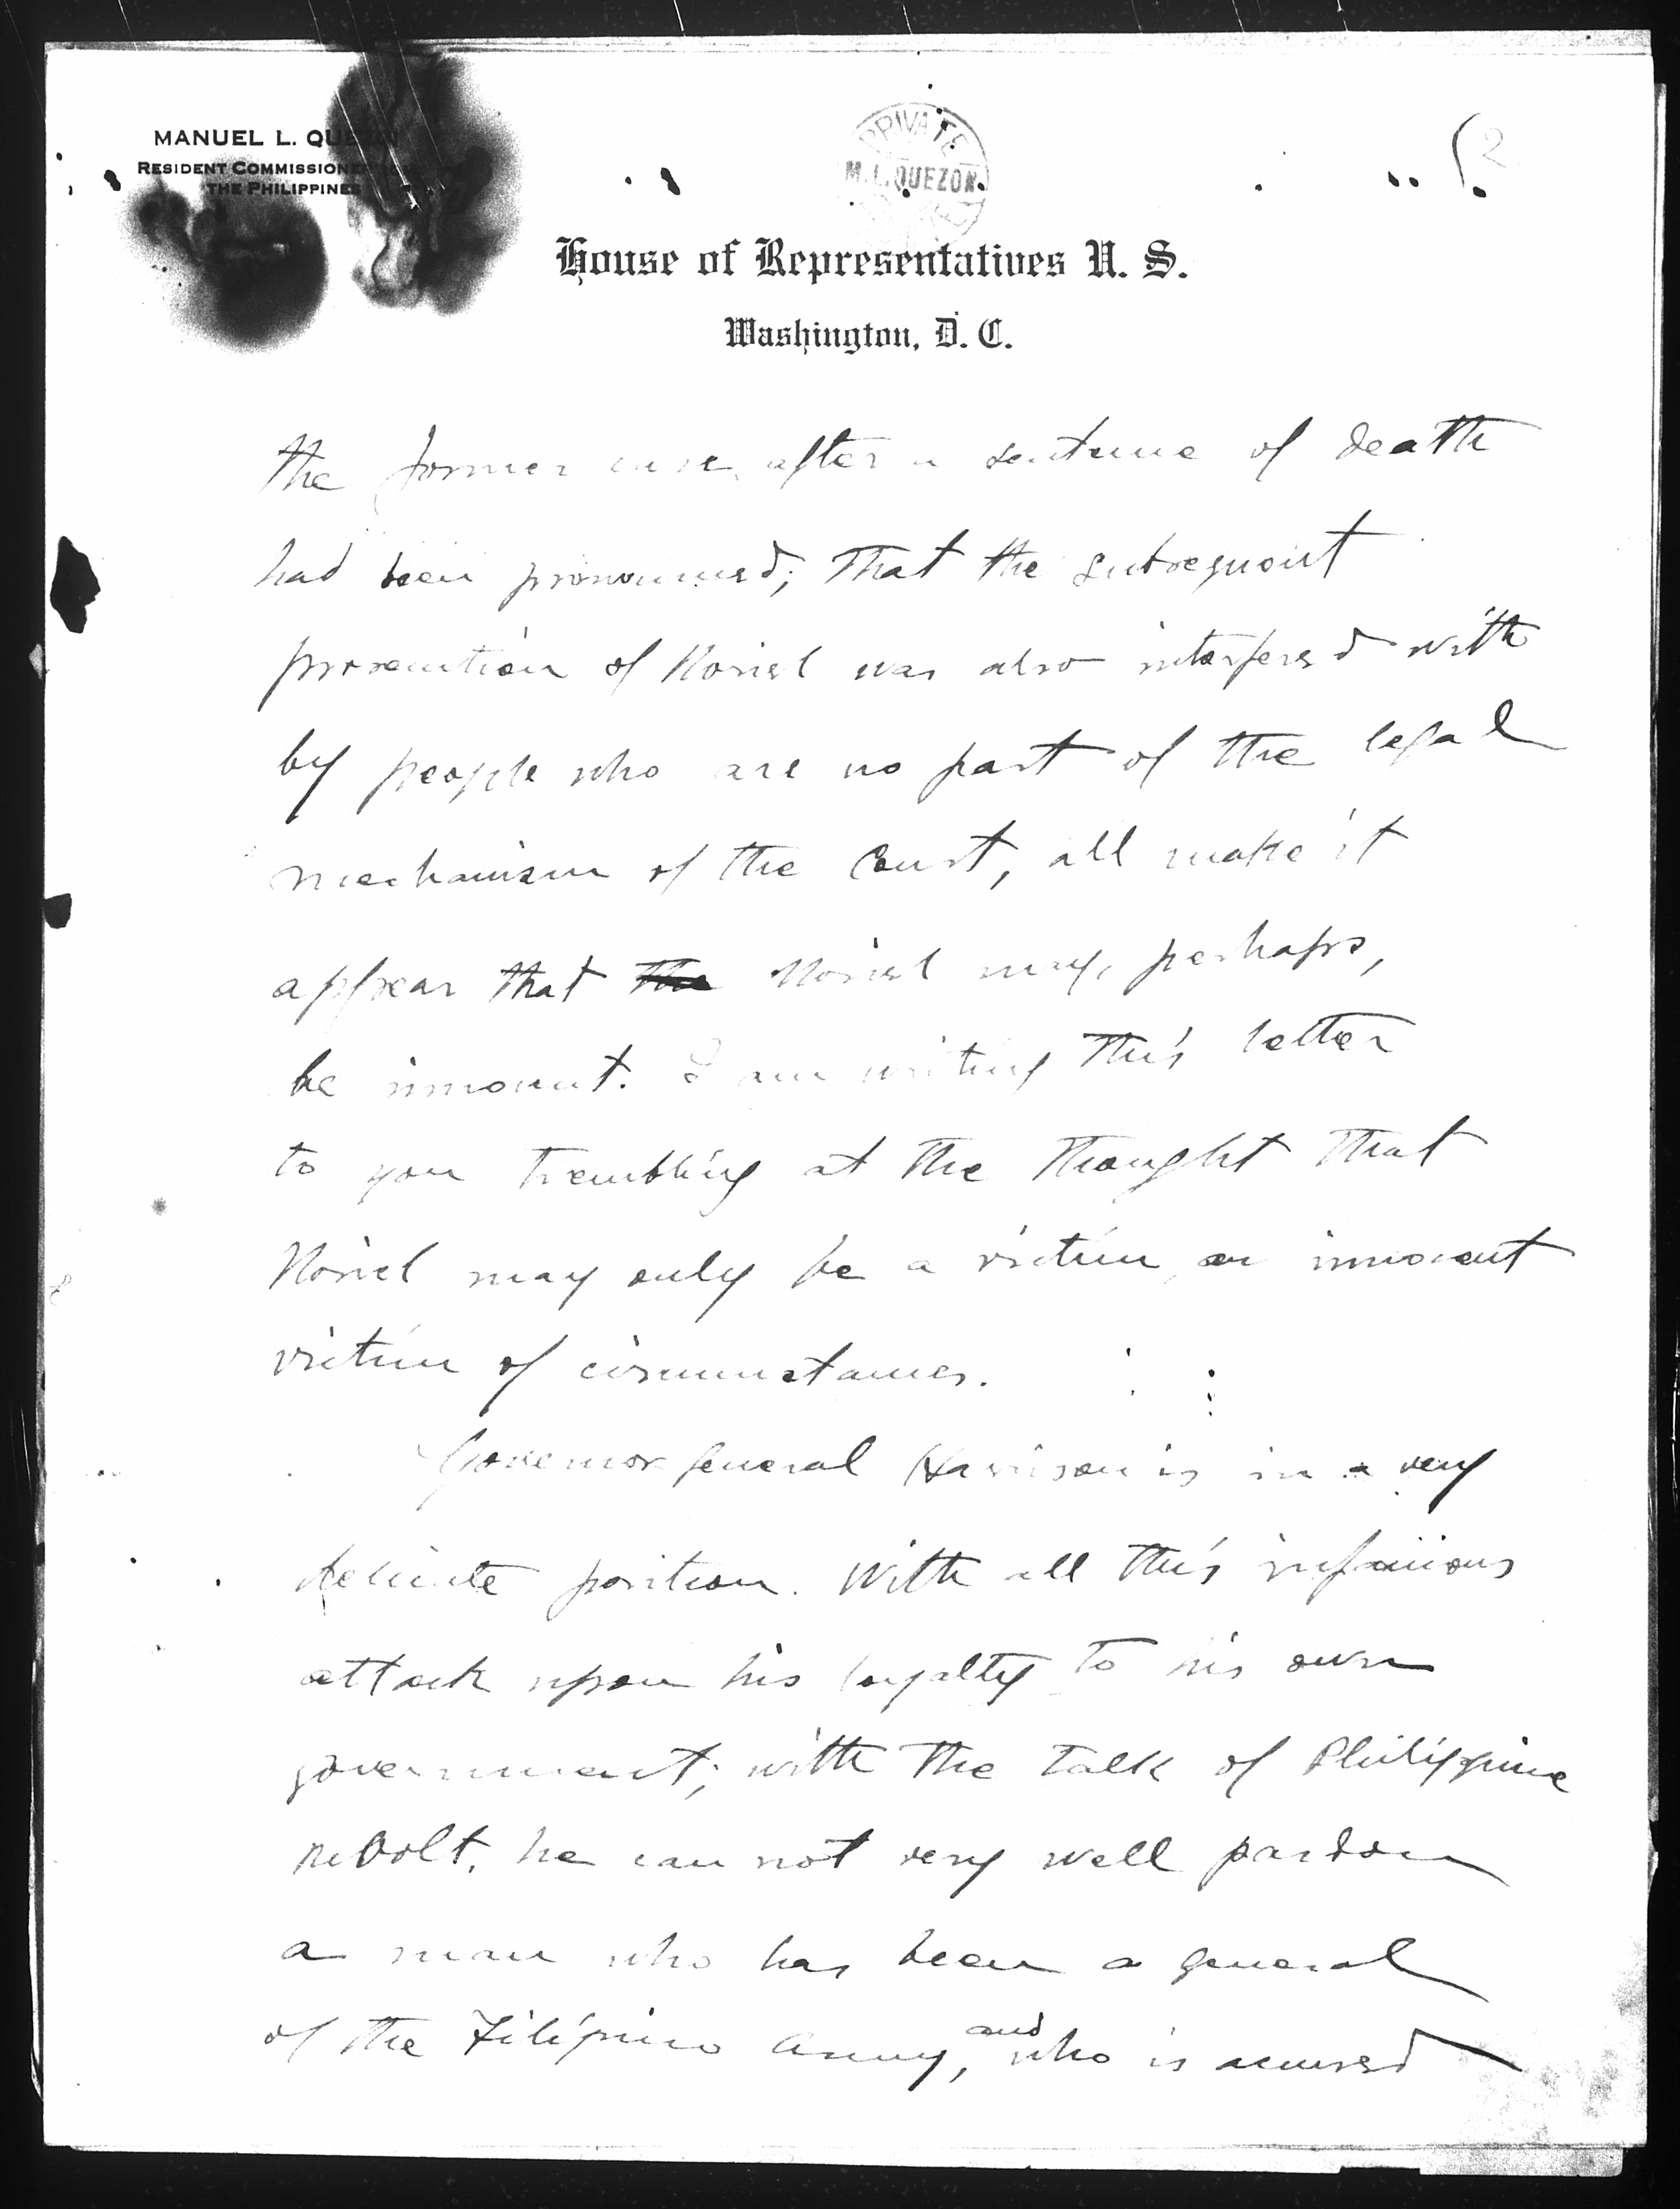 MANUEL L. QUEZON
RESIDENT COMMISSIONER
THE PHILIPPINES
PRIVATE
M. L. QUEZON
2
House of Representatives U. S.
Washington, D. C.
the former case, after a sentence of death
had been pronounced; that the subsequent
prosecution of Noriel was also interfered with
by people who are no part of the legal
mechanism of the Court, all make it
appear that the Noriel may, perhaps,
be innocent. I am writing this letter
to you trembling at the thought that
Noriel may only be a victim, an innocent
victim of circumstances.
Governor General Harrison is in a very
delicate position. With all this infamous
attack upon his loyalty to his own
government; with the talk of Philippine
revolt, he can not very well pardon
a man who has been a general
of the Filipino Army, and who is accused